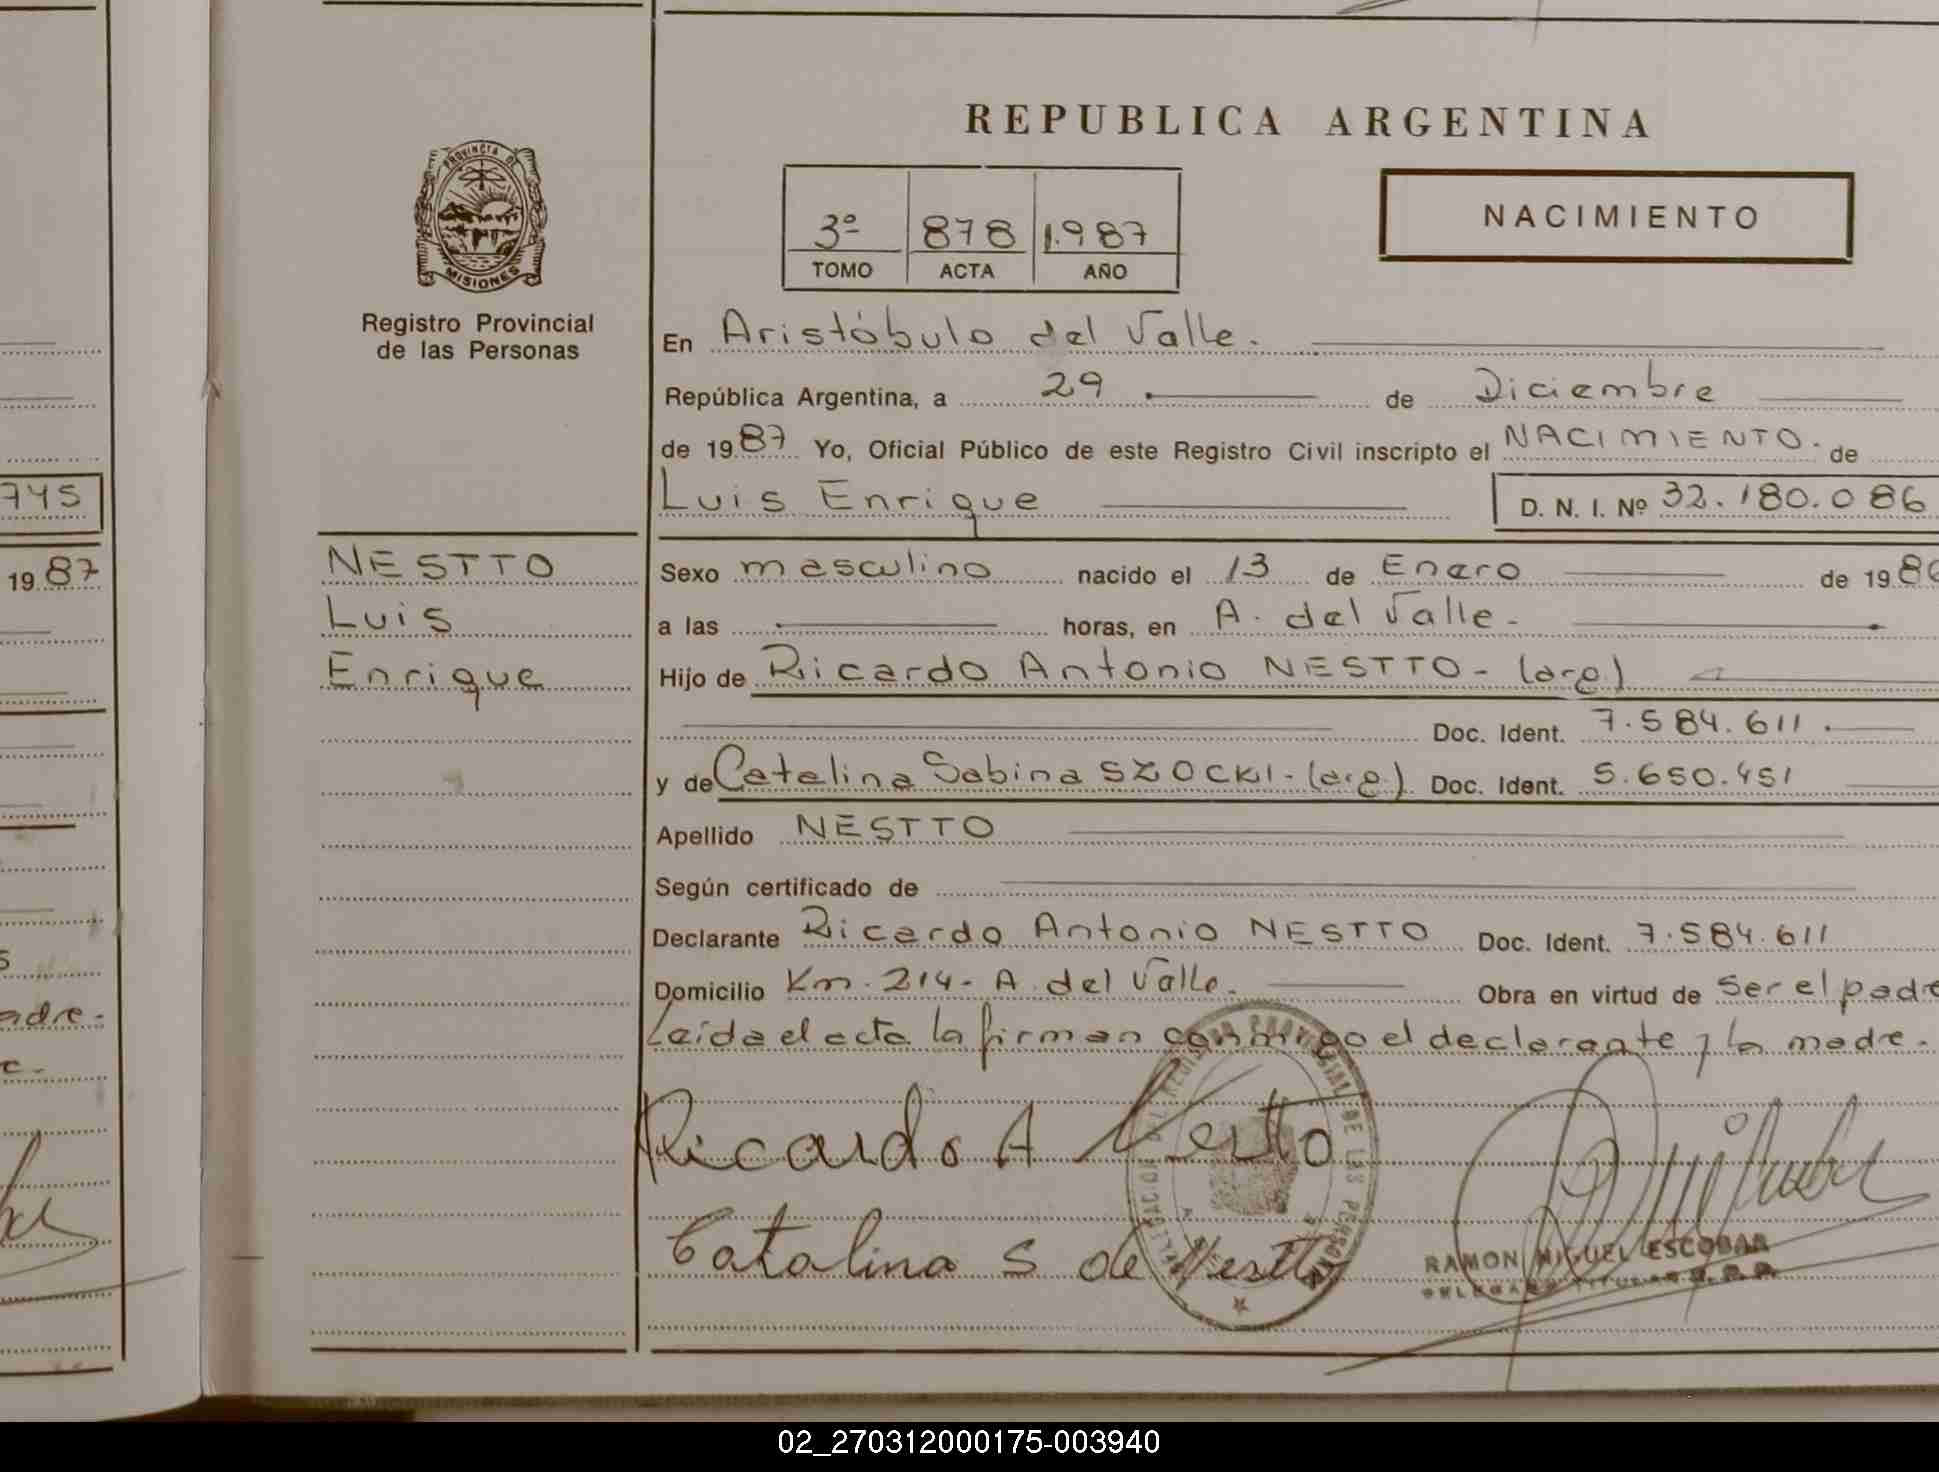 REPUBLICA ARGENTINA
PROVINCIA DE
MISIONES
Registro Provincial
de las Personas
3º 878 1.987
TOMO ACTA AÑO
NACIMIENTO
En Aristóbulo del Valle.
República Argentina, a 29 de Diciembre
de 1987 Yo, Oficial Público de este Registro Civil inscripto el NACIMIENTO. de
Luis Enrique D. N. I. Nº 32.180.086
745
1987
NESTTO
Luis
Enrique
Sexo masculino nacido el 13 de Enero de 198
a las horas, en A. del Valle.
Hijo de Ricardo Antonio NESTTO - (arg)
Doc. Ident. 7.584.611.
y de Catalina Sabina SZOCKI - (arg.) Doc. Ident. 5.650.451
Apellido NESTTO
Según certificado de
Declarante Ricardo Antonio NESTTO Doc. Ident. 7.584.611
Domicilio Km. 214 - A. del Valle. Obra en virtud de Ser el padre
adre.
Leída el acta la firman conmigo el declarante y la madre.
Ricardo A Nestto
Catalina S de Nestto
REGISTRO PROVINCIAL DE LAS PERSONAS
RAMON MIGUEL ESCOBAR
DELEGADO TITULAR R. P. P.
02_270312000175-003940